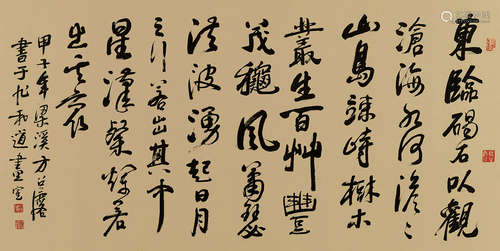 東臨碣石以觀
滄海水何澹〻
山島竦峙樹木
叢生百艸豐
茂龝風蕭瑟
洪波湧起日月
之行若出其中
星漢粲爛若
出其裏
甲子年梁溪方召麐
書于和道畫室